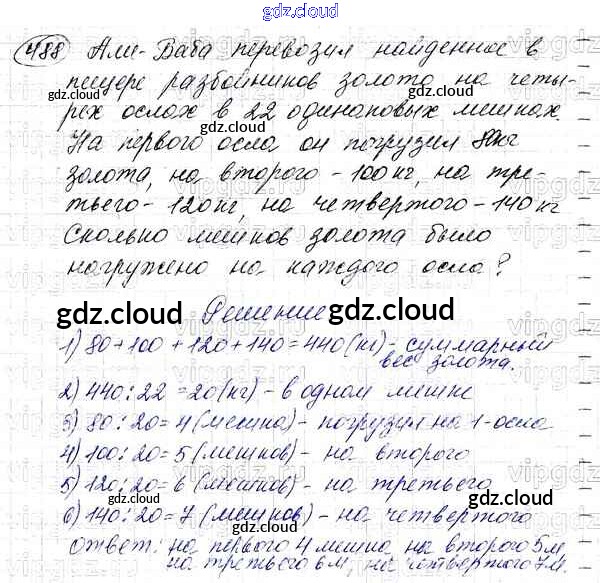 gdz.cloud
488 Али-Баба перевозил найденное в
пещере разбойников золото на четы-
рех ослах в 22 одинаковых мешках.
На первого осла он погрузил 80кг
золота, на второго - 100 кг, на тре-
тьего - 120кг, на четвертого - 140 кг
Сколько мешков золота было
нагружено на каждого осла?
gdz.cloud gdz.cloud
Решение
1) 80+100+120+140=440(кг)- суммарный
вес золота.
2) 440:22=20(кг)- в одном мешке
3) 80:20=4(мешка)- погрузил на 1-осла
4) 100:20=5(мешков)- на второго
5) 120:20=6(мешков)- на третьего
6) 140:20=7(мешков)- на четвертого
Ответ: на первого 4 мешка на второго 5м
на третьего 6м, на четвертого 7м.